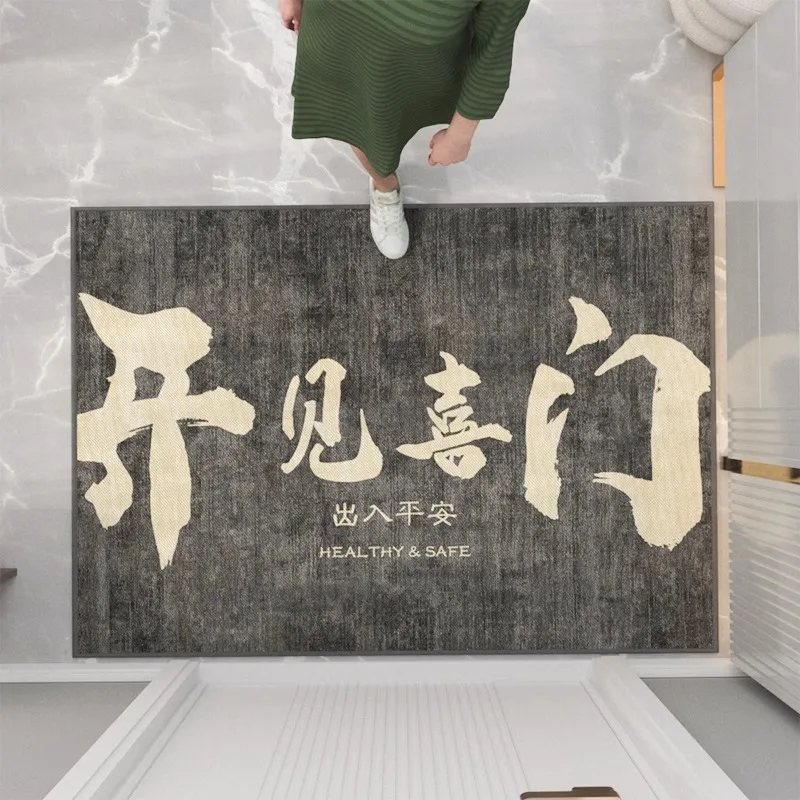 开见喜门
出入平安
HEALTHY & SAFE